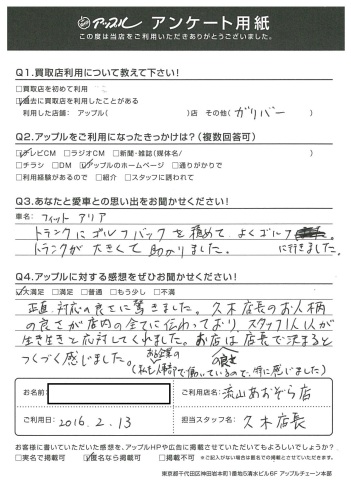 アップル アンケート用紙
この度は当店をご利用いただきありがとうございました。
Q1.買取店利用について教えて下さい!
□買取店を初めて利用
☑過去に買取店を利用したことがある
利用した店舗: アップル( )店 その他( ガリバー )
Q2.アップルをご利用になったきっかけは?(複数回答可)
☑テレビCM □ラジオCM □新聞・雑誌(媒体名/ )
□チラシ □DM ☑アップルのホームページ □通りがかりで
□利用経験があるので □紹介 □スタッフに誘われて
Q3.あなたと愛車との思い出をお聞かせください!
車名: フィット アリア
トランクにゴルフバックを積めて よくゴルフ
に行きました。
トランクが大きくて助かりました。
Q4.アップルに対する感想をぜひお聞かせください!
☑大満足 □満足 □普通 □もう少し □不満
正直対応の良さに驚きました。久木店長のお人柄
の良さが店内の全てに伝わっており、スタッフ1人1人が
生き生きと応対してくれました。お店は店長で決まると
の良さ
つくづく感じました。
(私も人事部で働いているので、特に感じました)
ある企業の
お名前:
ご利用店名: 流山あおぞら店
ご利用日: 2016. 2. 13
担当スタッフ名: 久木店長
お客様に書いていただいた感想を、アップルHPや広告に掲載させていただいてもよろしいでしょうか?
□実名で掲載可 ☑匿名なら掲載可 □掲載不可 ※ご記入がない場合は匿名での掲載とさせていただきます。
東京都千代田区神田岩本町1番地5清水ビル6F アップルチェーン本部